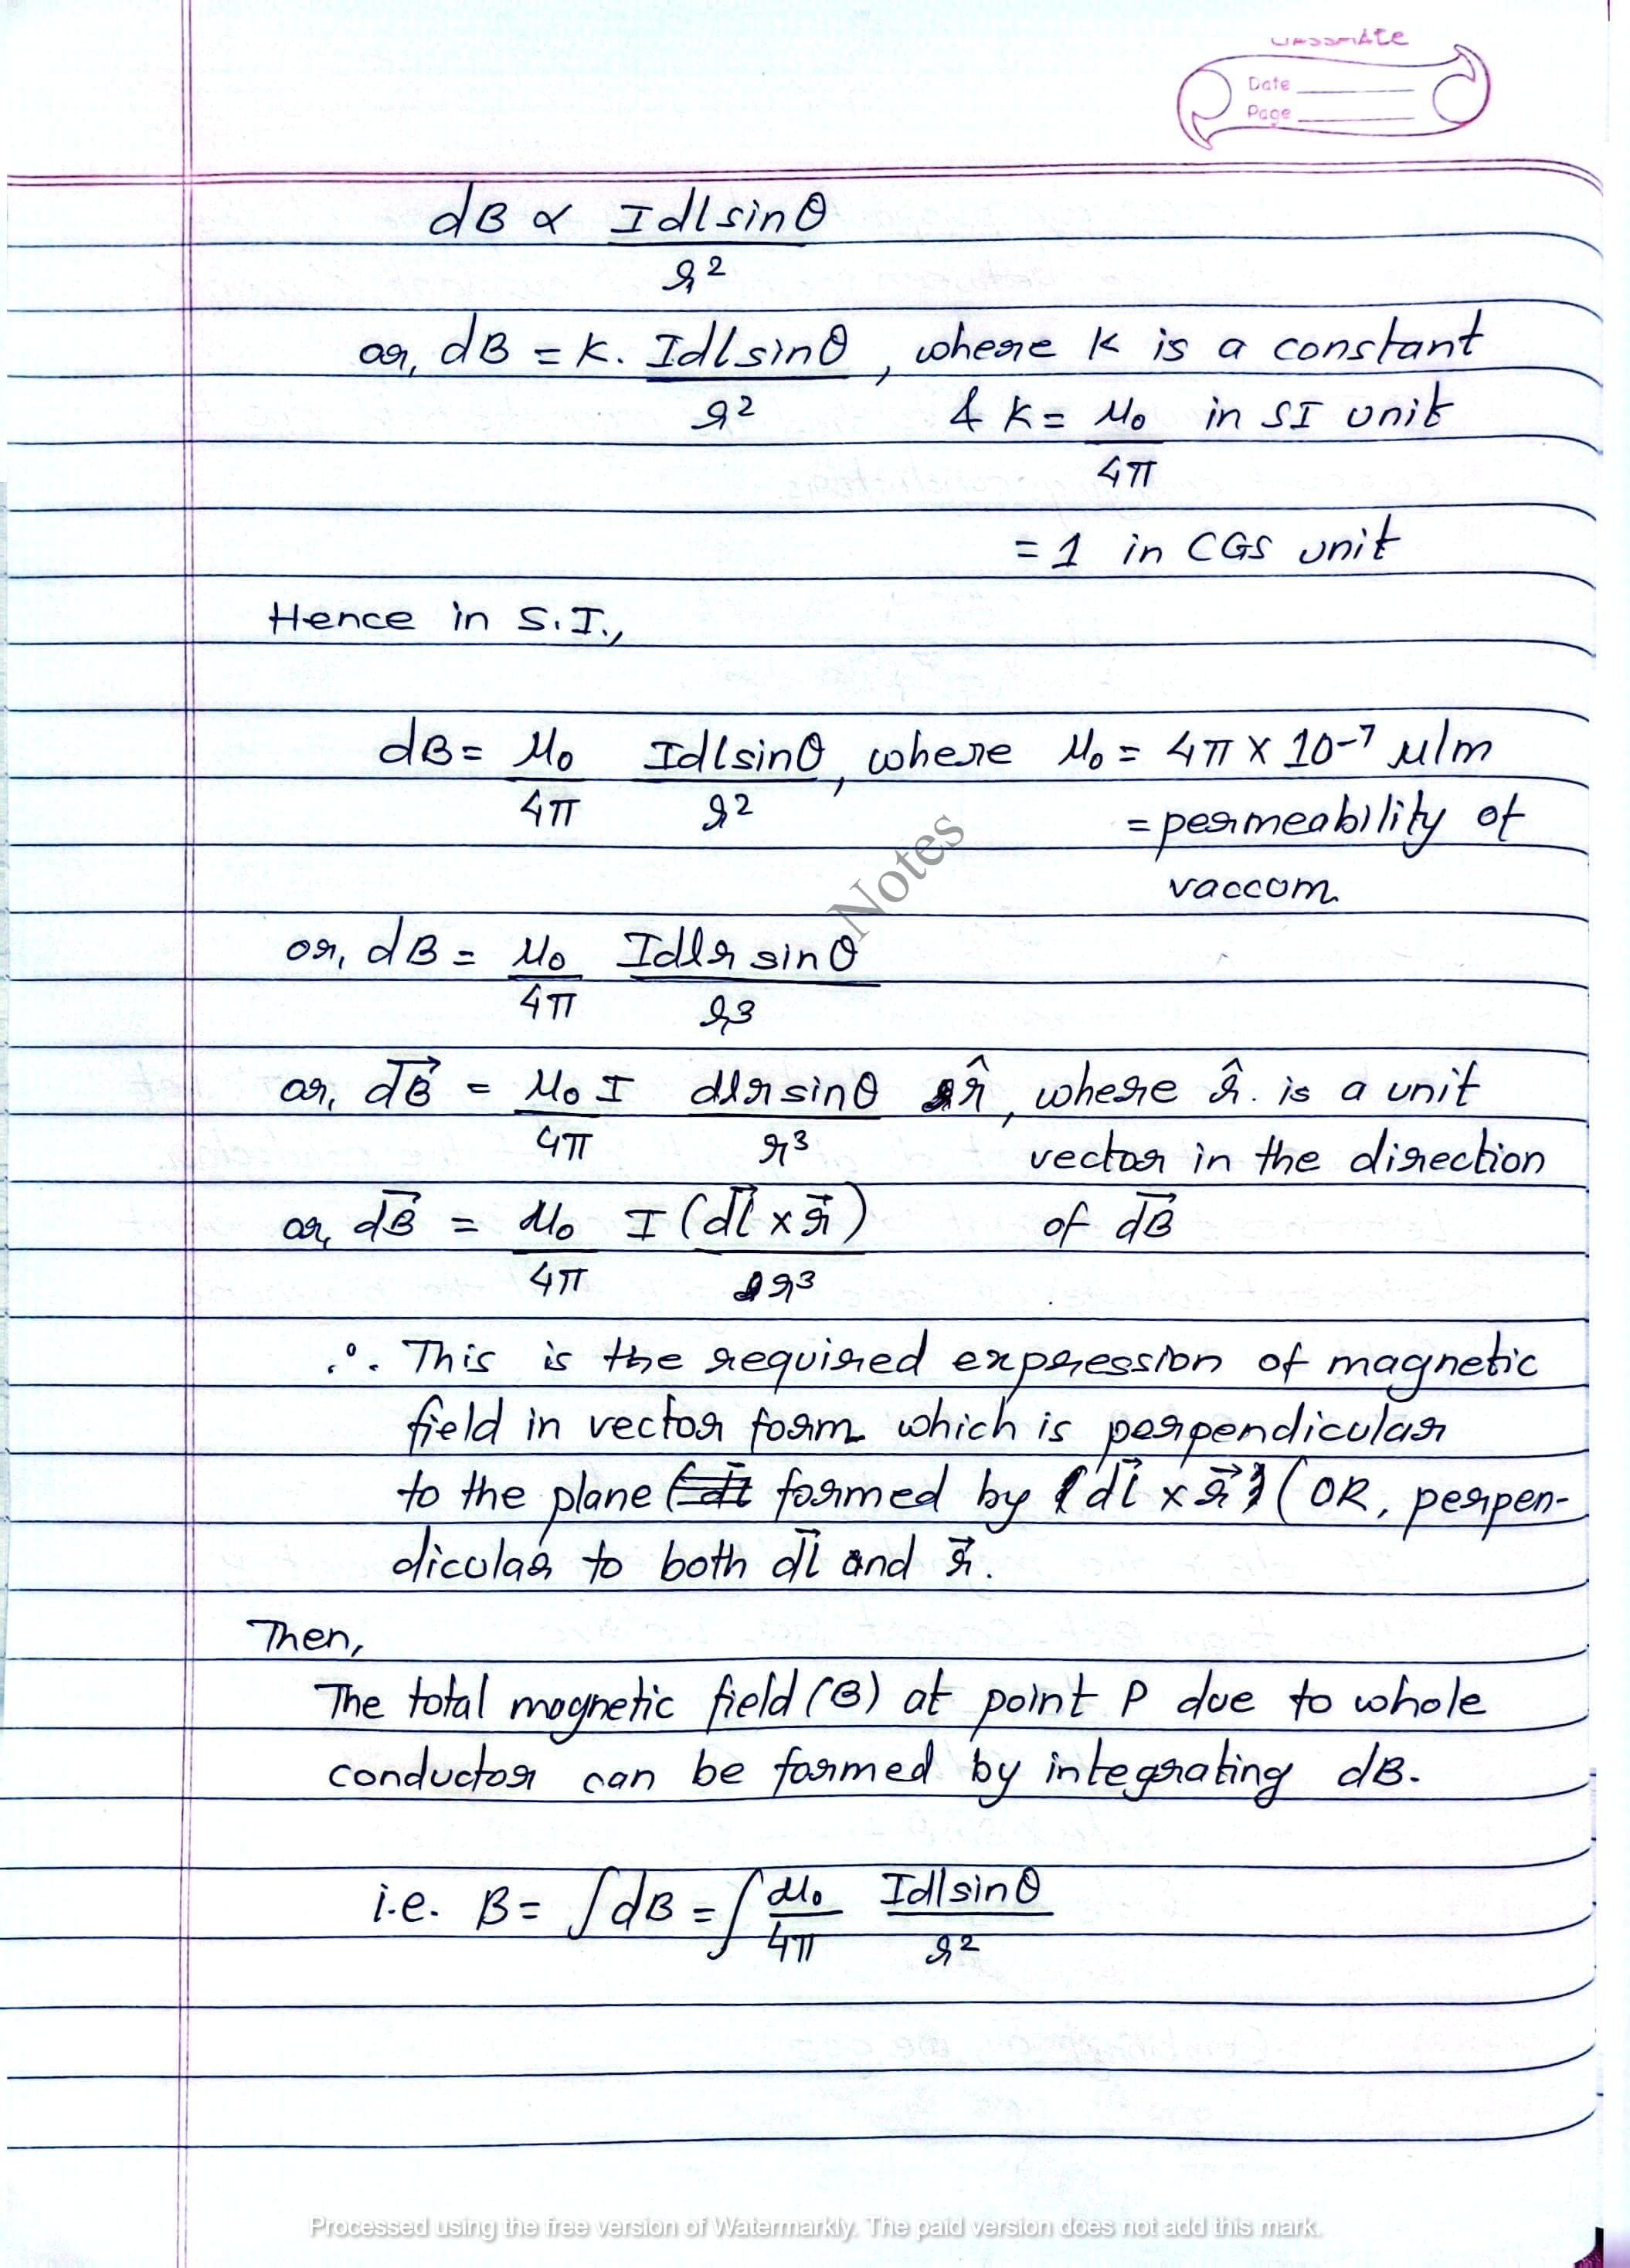 classmate
Date
Page
dB ∝ Idlsinθ / r²
or, dB = K. Idlsinθ / r², where K is a constant
& K = μ₀ / 4π in SI unit
= 1 in CGS unit
Hence in S.I.,
dB = μ₀ / 4π Idlsinθ / r², where μ₀ = 4π × 10⁻⁷ μ/m
= permeability of
vaccom
Notes
or, dB = μ₀ / 4π Idlr sinθ / r³
or, dB⃗ = μ₀ I / 4π dlr sinθ / r³ r̂, where r̂. is a unit
vector in the direction
or, dB⃗ = μ₀ / 4π I (dl⃗ × r⃗) / r³ of dB⃗
∴ This is the required expression of magnetic
field in vector form which is perpendicular
to the plane formed by (dl⃗ × r⃗) (OR, perpen-
dicular to both dl⃗ and r⃗.
Then,
The total magnetic field (B) at point P due to whole
conductor can be formed by integrating dB.
i.e. B = ∫dB = ∫ μ₀ / 4π Idlsinθ / r²
Processed using the free version of Watermarkly. The paid version does not add this mark.